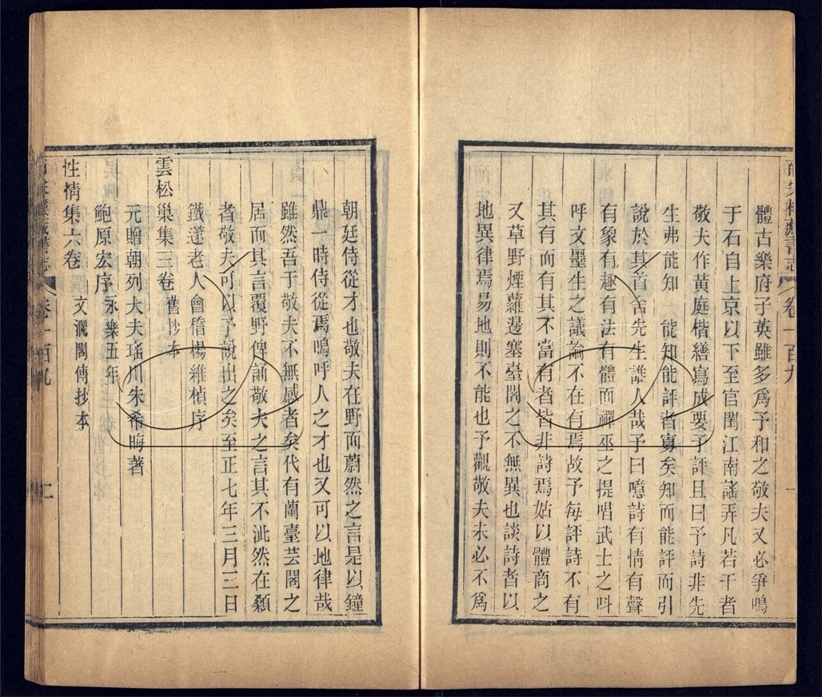 體古樂府子英雖多爲予和之敬夫又必爭鳴
于石自上京以下至宮閨江南謠弄凡若干者
敬夫作黃庭楷繕寫成要予評且曰予詩非先
生弗能知 能知能評者寡矣知而能評而引
說於其首舍先生誰人哉予曰噫詩有情有聲
有象有趣有法有體而禪巫之提唱武士之叫
呼文墨生之議論不在有焉故予每評詩不有
其有而有其不當有者皆非詩焉姑以體商之
又草野煙蘿邊塞臺閣之不無異也談詩者以
地異律焉易地則不能也予觀敬夫未必不爲
朝廷侍從才也敬夫在野而蔚然之言是以鐘
鼎一時侍從焉嗚呼人之才也又可以地律哉
雖然吾于敬夫不無感者矣代有蘭臺芸閣之
居而其言覆野俾誦敬夫之言其不泚然在顙
者敬夫可以予說出之矣至正七年三月三日
鐵邃老人會儋楊維楨序
雲松巢集三卷 舊抄本
元贈朝列大夫瑤川朱希晦著
鮑原宏序 永樂五年
性情集六卷 文瀾閣傳抄本
藏書志 卷一百九